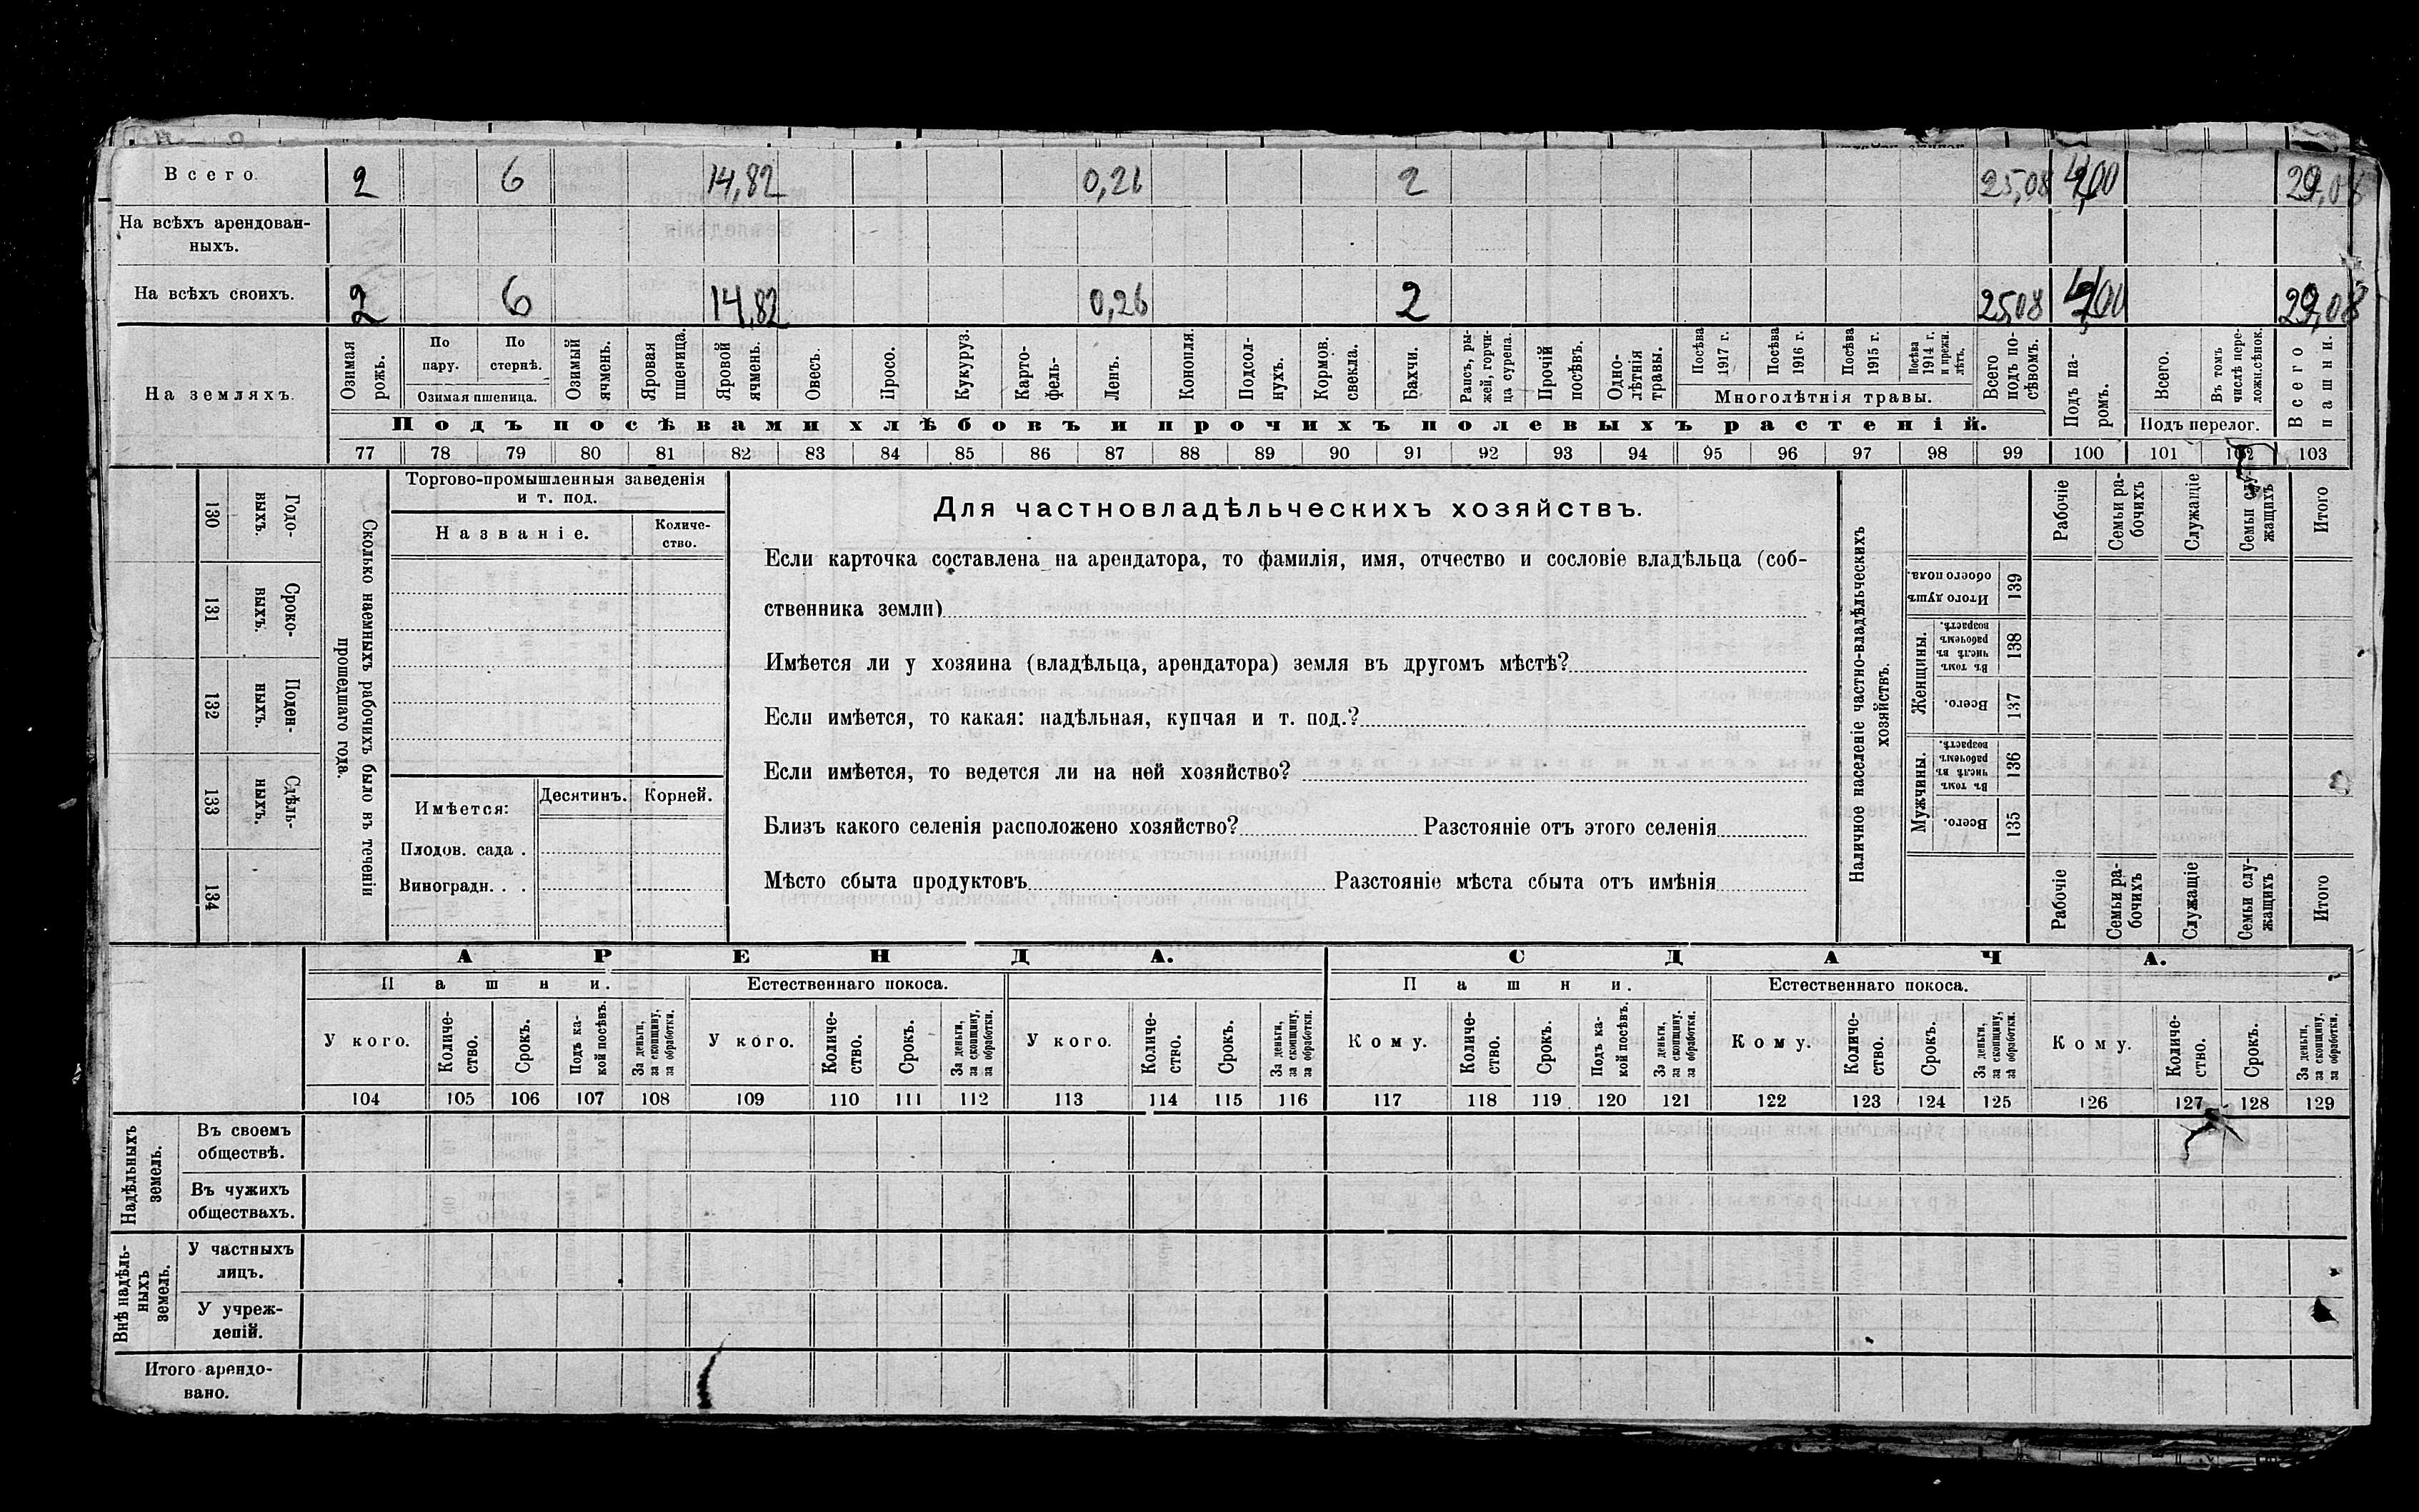 Всего. 2 6 14,82 0,26 2 25,08 4,00 29,08
На всѣхъ арендован-
ныхъ.
На всѣхъ своихъ. 2 6 14,82 0,26 2 25,08 4,00 29,08
На земляхъ.
Озимая рожь.
По пару.
По стернѣ.
Озимая пшеница.
Озимый ячмень.
Яровая пшеница.
Яровой ячмень.
Овесъ.
Просо.
Кукуруз.
Карто-
фель.
Ленъ.
Конопля.
Подсол-
нухъ.
Кормов. свекла.
Бахчи.
Рапсъ, ры-
жей, горчи-
ца сурепа.
Прочій посѣвъ.
Одно-
лѣтнія травы.
Посѣва 1917 г.
Посѣва 1916 г.
Посѣва 1915 г.
Посѣва 1914 г. и прежн. лѣтъ.
Многолѣтнія травы.
Всего подъ по-
сѣвомъ.
Подъ па-
ромъ.
Всего.
Въ томъ числѣ пере-
ложн. сѣнок.
Подъ перелог.
Всего пашни.
Подъ посѣвами хлѣбовъ и прочихъ полевыхъ растеній.
77 78 79 80 81 82 83 84 85 86 87 88 89 90 91 92 93 94 95 96 97 98 99 100 101 102 103
130 Годо-
ныхъ.
131 Сроко-
ныхъ.
132 Поден-
ныхъ.
133 Сдѣль-
ныхъ.
134
Сколько наемныхъ рабочихъ было въ теченіи
прошедшаго года.
Торгово-промышленныя заведенія
и т. под.
Названіе.
Количе-
ство.
Имѣется:
Десятинъ. Корней.
Плодов. сада .
Виноградн. . .
Для частновладѣльческихъ хозяйствъ.
Если карточка составлена на арендатора, то фамилія, имя, отчество и сословіе владѣльца (соб-
ственника земли)
Имѣется ли у хозяина (владѣльца, арендатора) земля въ другомъ мѣстѣ?
Если имѣется, то какая: надѣльная, купчая и т. под.?
Если имѣется, то ведется ли на ней хозяйство?
Близъ какого селенія расположено хозяйство? Разстояніе отъ этого селенія
Мѣсто сбыта продуктовъ Разстояніе мѣста сбыта отъ имѣнія
Наличное населеніе частно-владѣльческихъ
хозяйствъ.
Рабочіе
Семьи ра-
бочихъ
Служащіе
Семьи слу-
жащихъ
Итого
Итого душъ обоего пола. 139
Женщины.
Въ томъ числѣ въ рабочемъ возрастѣ. 138
Всего. 137
Мужчины.
Въ томъ числѣ въ рабочемъ возрастѣ. 136
Всего. 135
Рабочіе
Семьи ра-
бочихъ
Служащіе
Семьи слу-
жащихъ
Итого
АРЕНДА. СДАЧА.
Пашни. Естественнаго покоса. Пашни. Естественнаго покоса.
У кого.
Количе-
ство.
Срокъ.
Подъ ка-
кой посѣвъ.
За деньги,
за скопщину,
за обработки.
У кого.
Количе-
ство.
Срокъ.
За деньги,
за скопщину,
за обработки.
У кого.
Количе-
ство.
Срокъ.
За деньги,
за скопщину,
за обработки.
Кому.
Количе-
ство.
Срокъ.
Подъ ка-
кой посѣвъ.
За деньги,
за скопщину.
за обработки.
Кому.
Количе-
ство.
Срокъ.
За деньги,
за скопщину,
за обработки.
Кому.
Количе-
ство.
Срокъ.
За деньги,
за скопщину,
за обработки.
104 105 106 107 108 109 110 111 112 113 114 115 116 117 118 119 120 121 122 123 124 125 126 127 128 129
Надѣльныхъ
земель.
Въ своемъ
обществѣ.
Въ чужихъ
обществахъ.
Внѣ надѣль-
ныхъ
земель.
У частныхъ
лицъ.
У учреж-
деній.
Итого арендо-
вано.